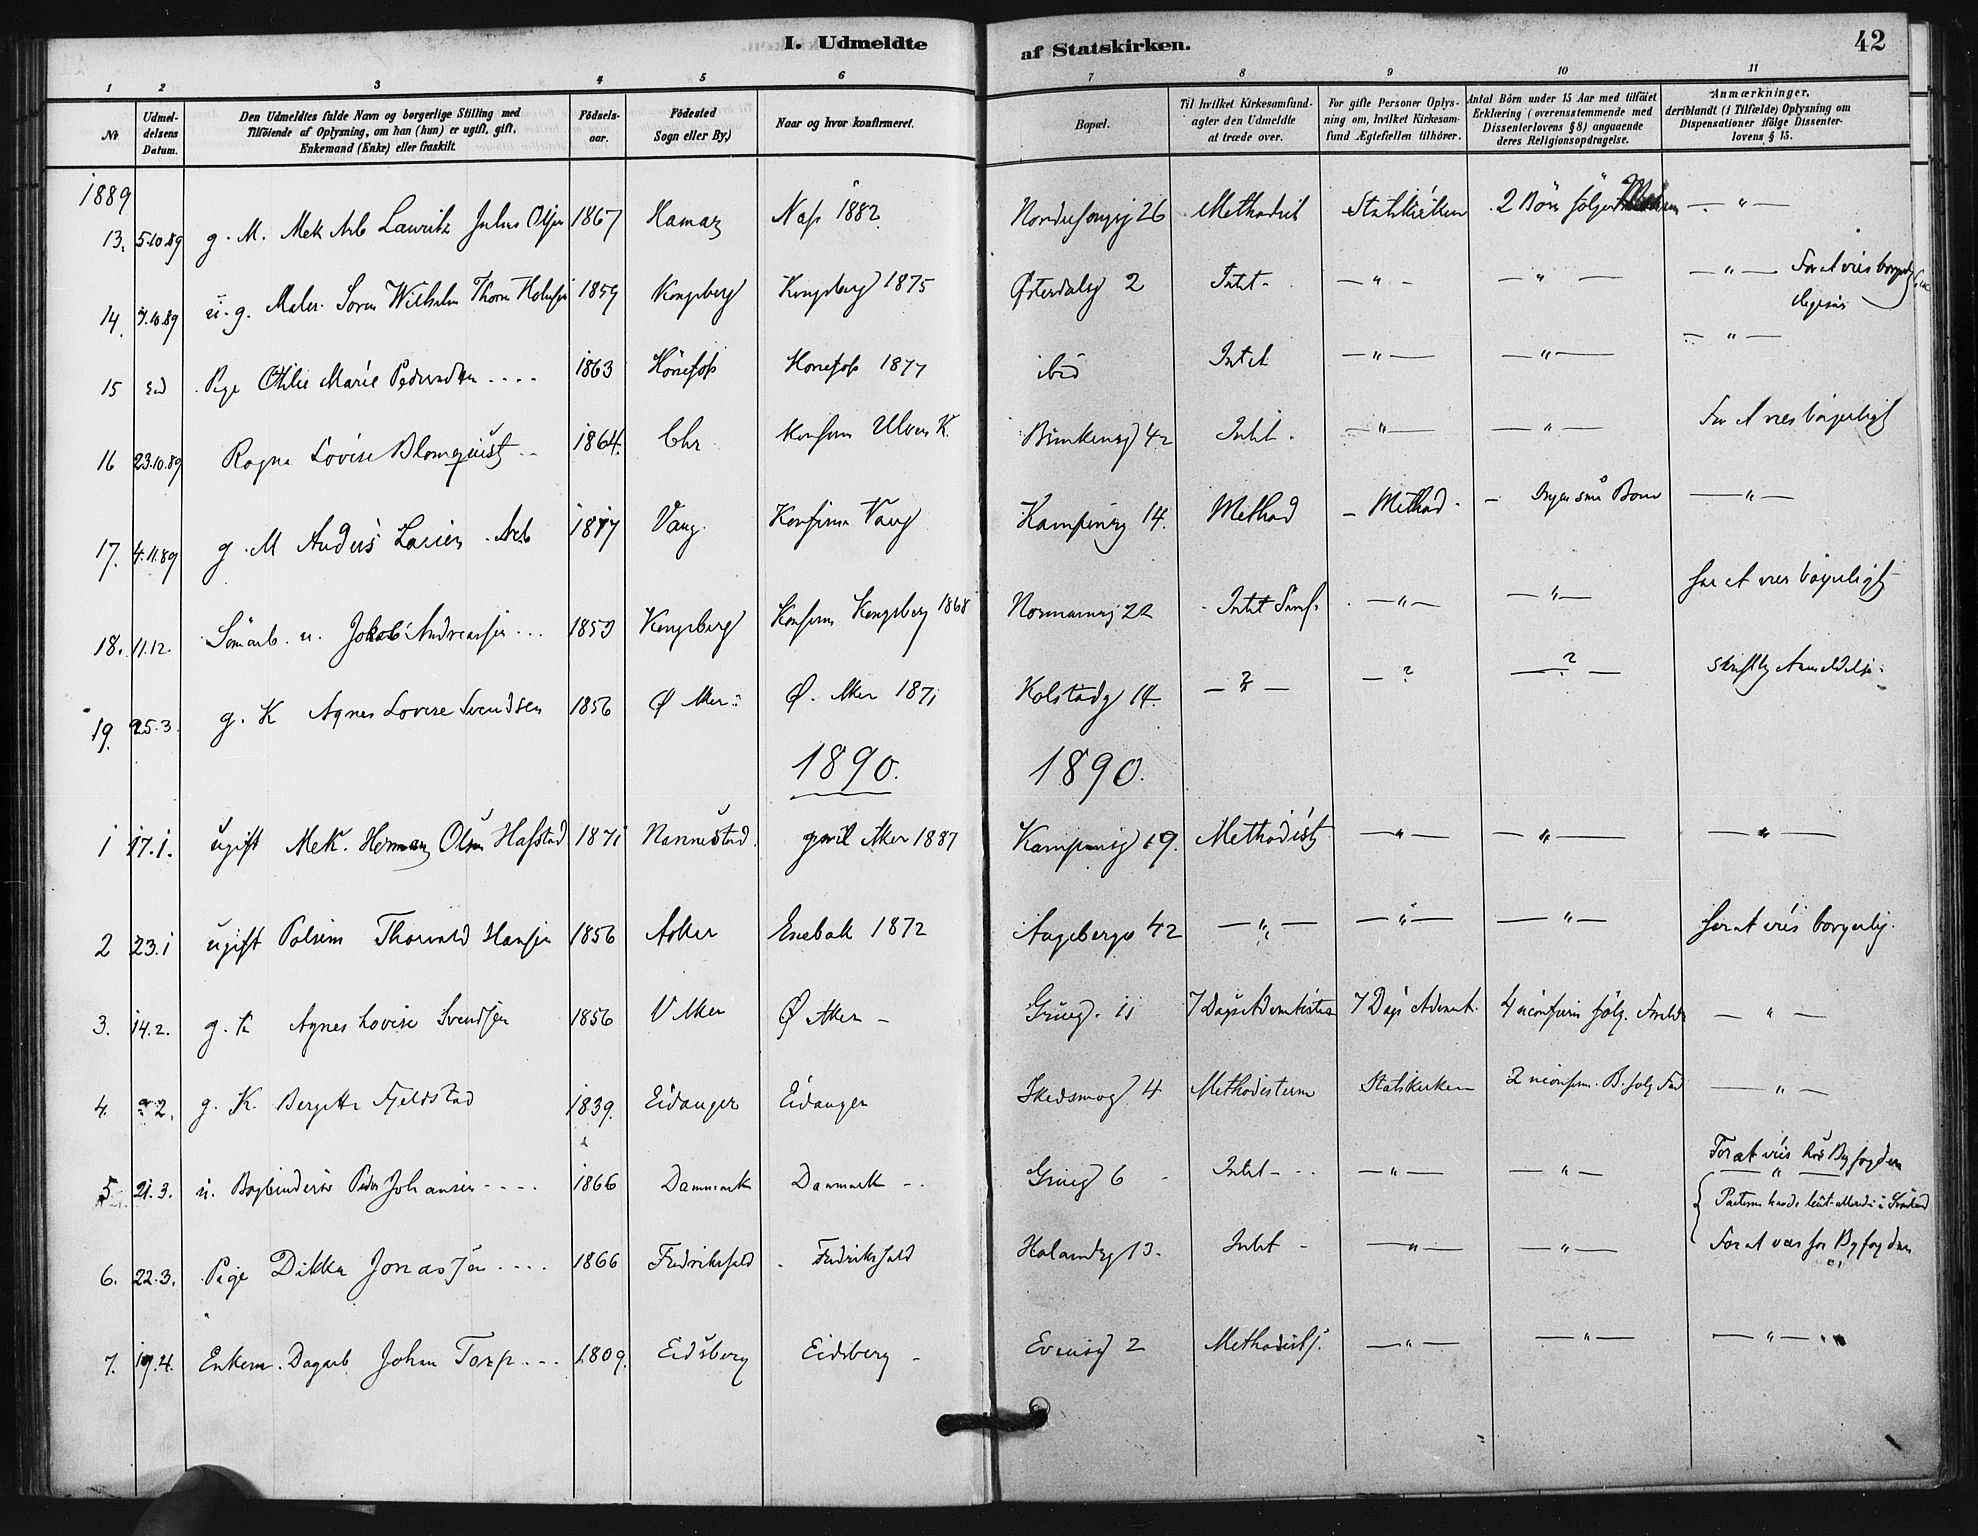 I. Udmeldte af Statskirken. 42
1 2 3 4 5 6 7 8 9 10 11
No Udmeldelsens Datum. Den Udmeldtes fulde Navn og borgerlige Stilling med Tilføiende af Oplysning, om han (hun) er ugift, gift, Enkemand (Enke) eller fraskilt. Fødselsaar. Fødested Sogn eller By,) Naar og hvor konfirmeret. Bopæl. Til hvilket Kirkesamfundagter den Udmeldte at træde over. For gifte Personer Oplysning om, hvilket Kirkesamfund Ægtefællen tilhører. Antal Börn under 15 Aar med tilföiet Erklæring (overensstemmende med Dissenterlovens § 8) angaaende deres Religionsopdragelse. Anmærkninger, deriblandt (i Tilfælde) Oplysning om Dispensationer ifölge Dissenterlovens § 15.
1889
13. 5.10.89 g. M. Mek Arb Lauritz Julius Olsen 1867 Hamar 1882 26 Methodist Statskirken 2 Börn — " —
14. 7.10.89 u. g. Maler Soren Wilhelm Thorn 1859 Kongsberg Kongsberg 1875 Østerdalsg 2 Intet — " — — " — — " — For at vies
15 Pige Othilie Marie Pedersdtn .... 1863 Hönefos Hönefos 1877 ibid Intet — " — — " — — " —
16 23.10.89 Ragna Lovise Blomquist 1864. Chr 42 Intet. — " — — " — For at vies borgerligt
17. 4.11.89 g. M Anders Larsen Arb Vang. Konfirm Vang Kampeng 14. Method — Method. — Ingen små Børn — " —
18. 11.12. u. Jakob Andreassen ... 1859 Kongsberg Konfirm Kongsberg 1868 Normannsg 22 Intet Samf. — " — — " — for at vies borgerligt
19. 25.3. g. K Agnes Lovise Svendsen 1856 Ø Aker Ø. Aker 1871 Kolstadg 14 — ? — — ? — ? — skriftlig Anmeldelse.
1890. 1890.
1 17.1. ugift Mek. Herman Olsen Hafstad 1871 Nannestad. Aker 1887 Kampensg 19. Methodist — " — — " — — " —
2 23.1 ugift Thorvald Hansen 1856 Asker Enebak 1872 Aagebergv 42 — " — — " — — " — for at vies borgerlig.
3. 14.2. g. K Agnes Lovise Svendsen 1856 V Aker Ø Aker — Grüng. 11 7 Dags Adventister 7 Dags Advent. 4 — " —
4. g. K. Bergitte Fjeldstad 1839. Eidanger Eidanger Skedsmog 4 Methodisterne Statskirken 2 — " —
5 21.3. u. Bogbindersv Peder Johansen .... 1866 Danmark Danmark Grüng 6 Intet — " — — " — For at vies hos Byfogden
— " —
6. 22.3. Pige Dikka Jonassen .... 1866 Fredrikshald Fredrikshald 13. Intet — " — — " — For at vies for Byfogden
7. 19.4. Enkem. Dagarb Johan Torp ... 1809. Eidsberg Eidsberg — 2 Methodist — " — — " — — " —